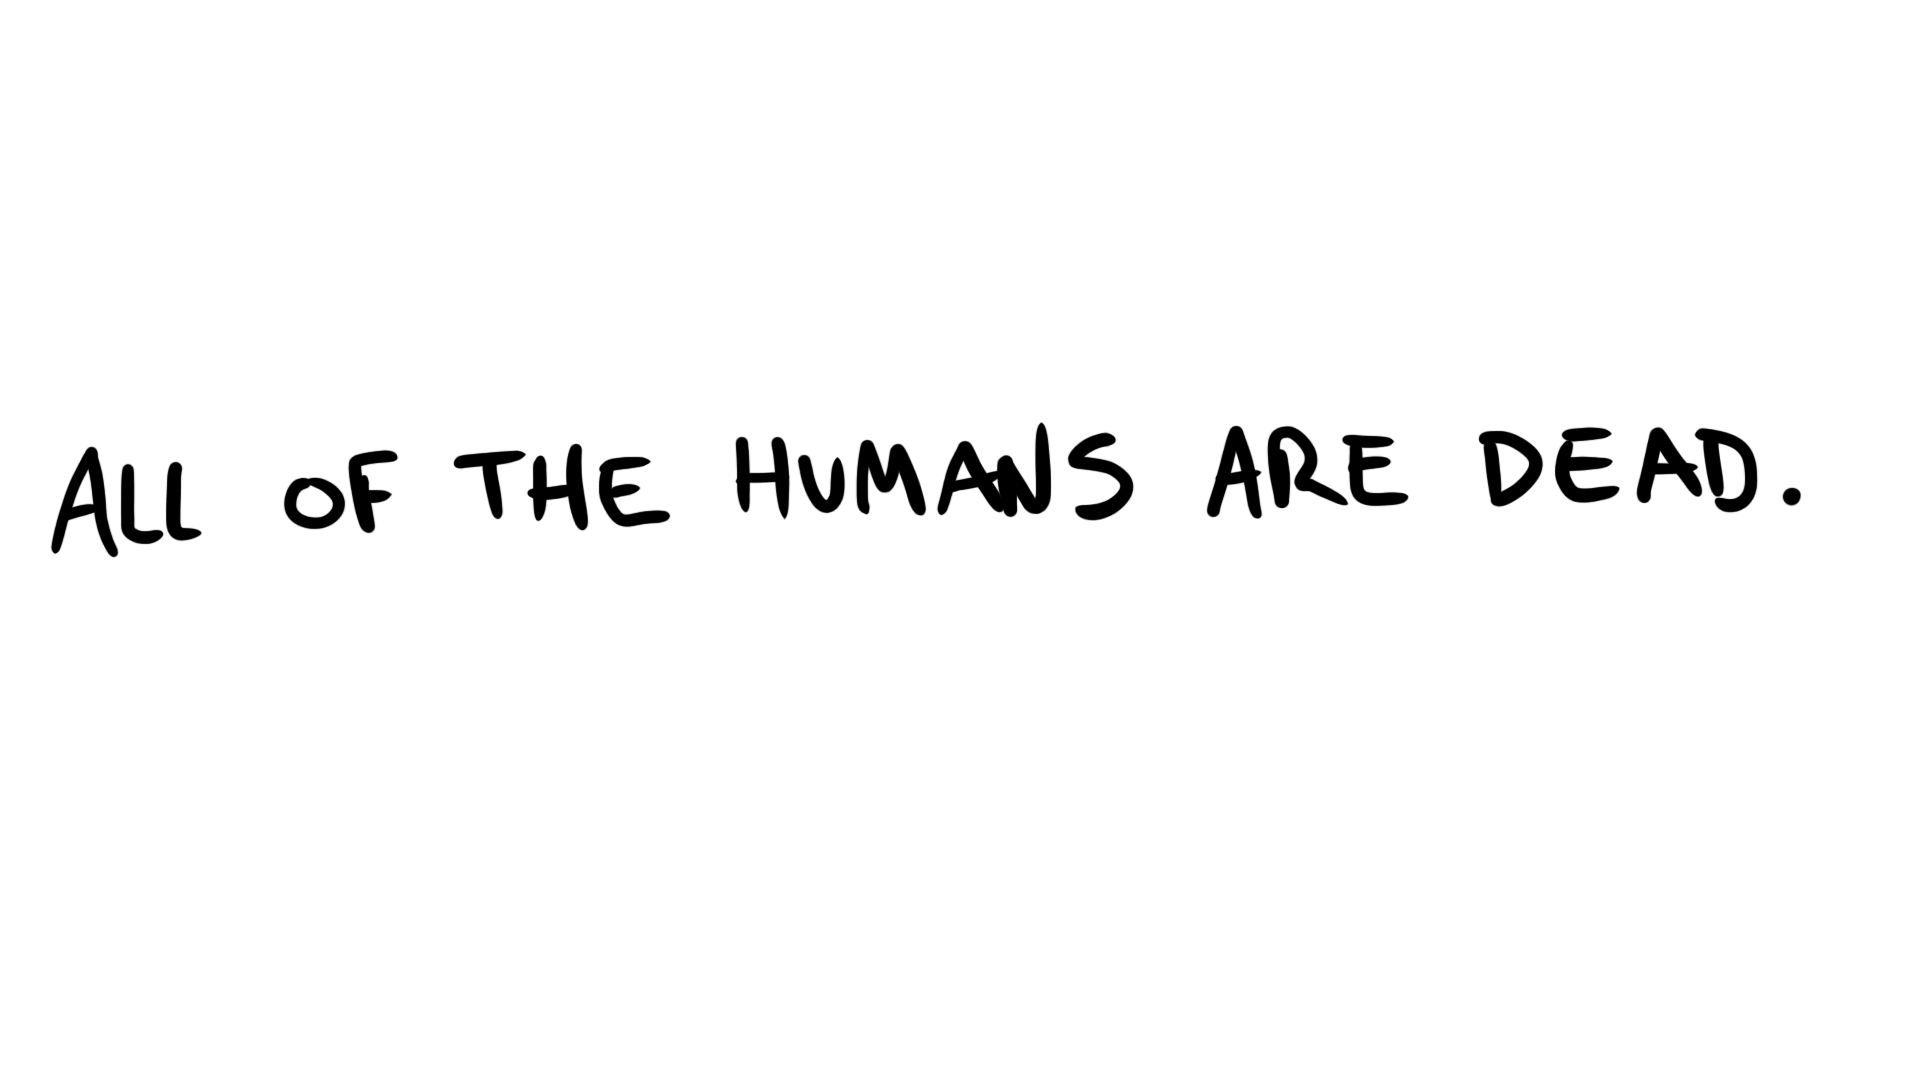 ALL OF THE HUMANS ARE DEAD.